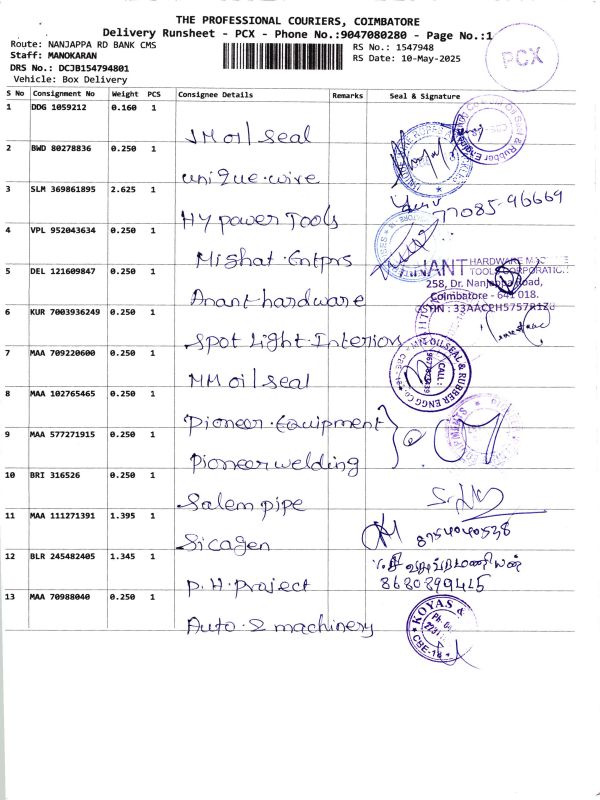 THE PROFESSIONAL COURIERS, COIMBATORE
Delivery Runsheet - PCX - Phone No.:9047080280 - Page No.:1
Route: NANJAPPA RD BANK CMS
RS No.: 1547948
Staff: MANOKARAN
RS Date: 10-May-2025
DRS No.: DCJB154794801
Vehicle: Box Delivery
PCX
S No Consignment No Weight PCS Consignee Details Remarks Seal & Signature
1 DDG 1059212 0.160 1 JM oil seal
2 BWD 80278836 0.250 1 unique wire
3 SLM 369861895 2.625 1 Hy power Tools 77085-96669
4 VPL 952043634 0.250 1 Mishat Entprs
5 DEL 121609847 0.250 1 Anant hardware
ANANT HARDWARE
TOOLS CORPORATION
258, Dr. Nanjappa Road,
Coimbatore - 641 018.
6 KUR 7003936249 0.250 1 Spot Light Interiors
7 MAA 709220600 0.250 1 MM oil seal
MM OIL SEAL & RUBBER ENGG CO
CALL :
8 MAA 102765465 0.250 1 Pioneer Equipment
9 MAA 577271915 0.250 1 Pioneer welding
10 BRI 316526 0.250 1 Salem pipe
11 MAA 111271391 1.395 1 Sicagen 8754040538
12 BLR 245482405 1.345 1 P.H. project
8680899415
13 MAA 70988040 0.250 1 Auto & machinery
KOYAS &
CBE-18